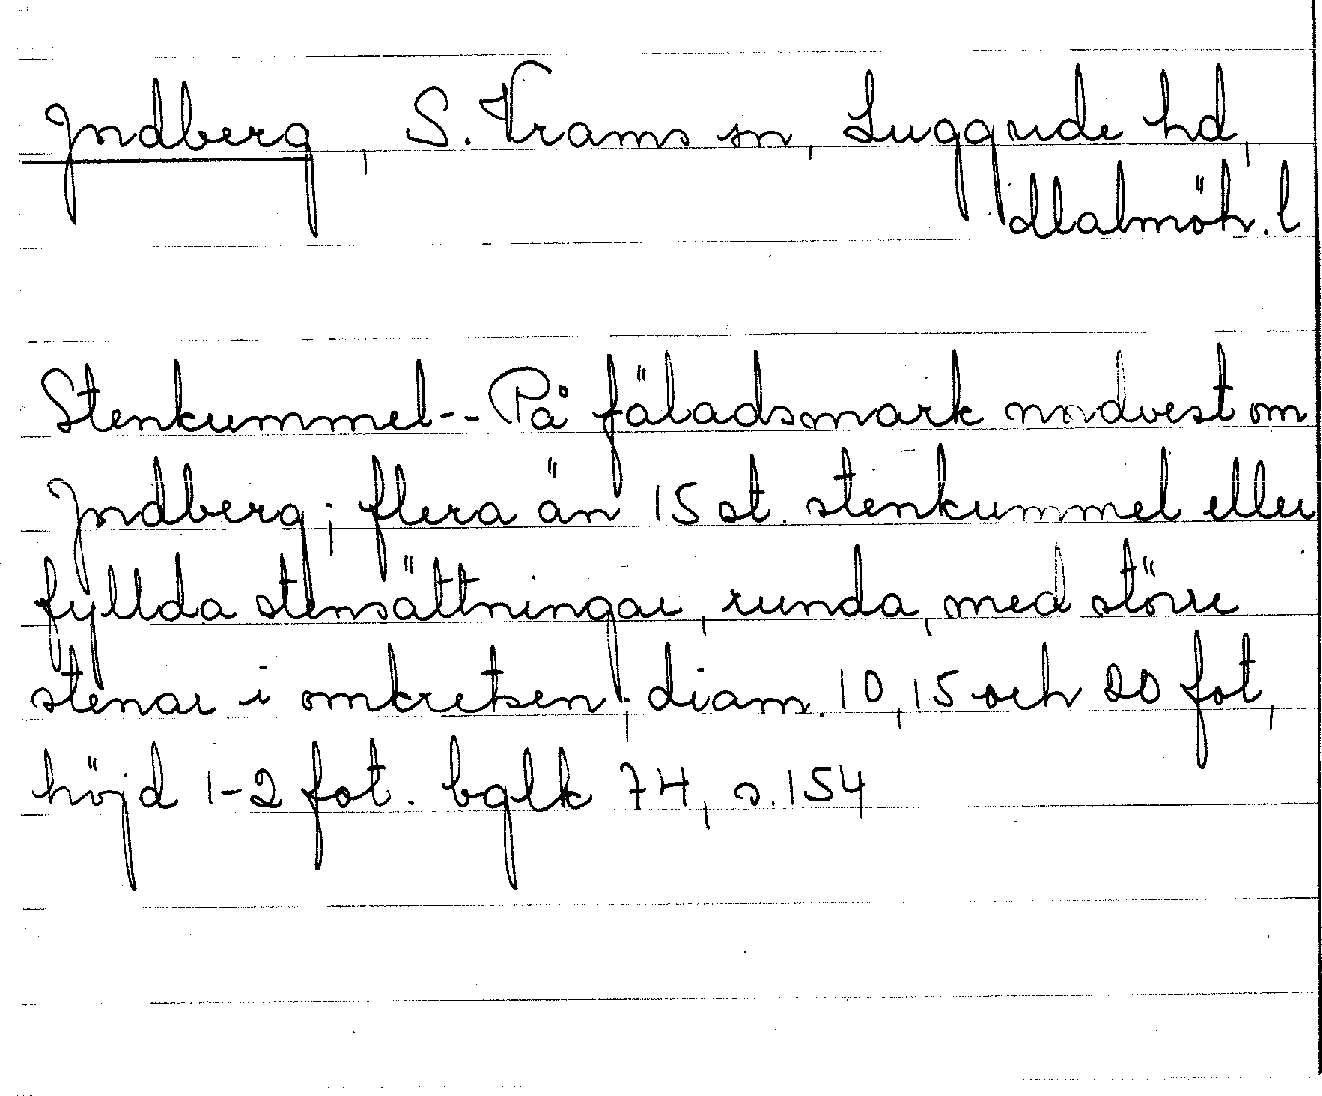 Jordberg, S. Vrams sn, Luggude hd,
Malmöh. l
Stenkummel-- På fäladsmark nordvest om
Jordberg; flera än 15 st. stenkummel eller
fyllda stensättningar, runda, med större
stenar i omkretsen; diam. 10, 15 och 20 fot,
höjd 1-2 fot. bglk 74, s. 154